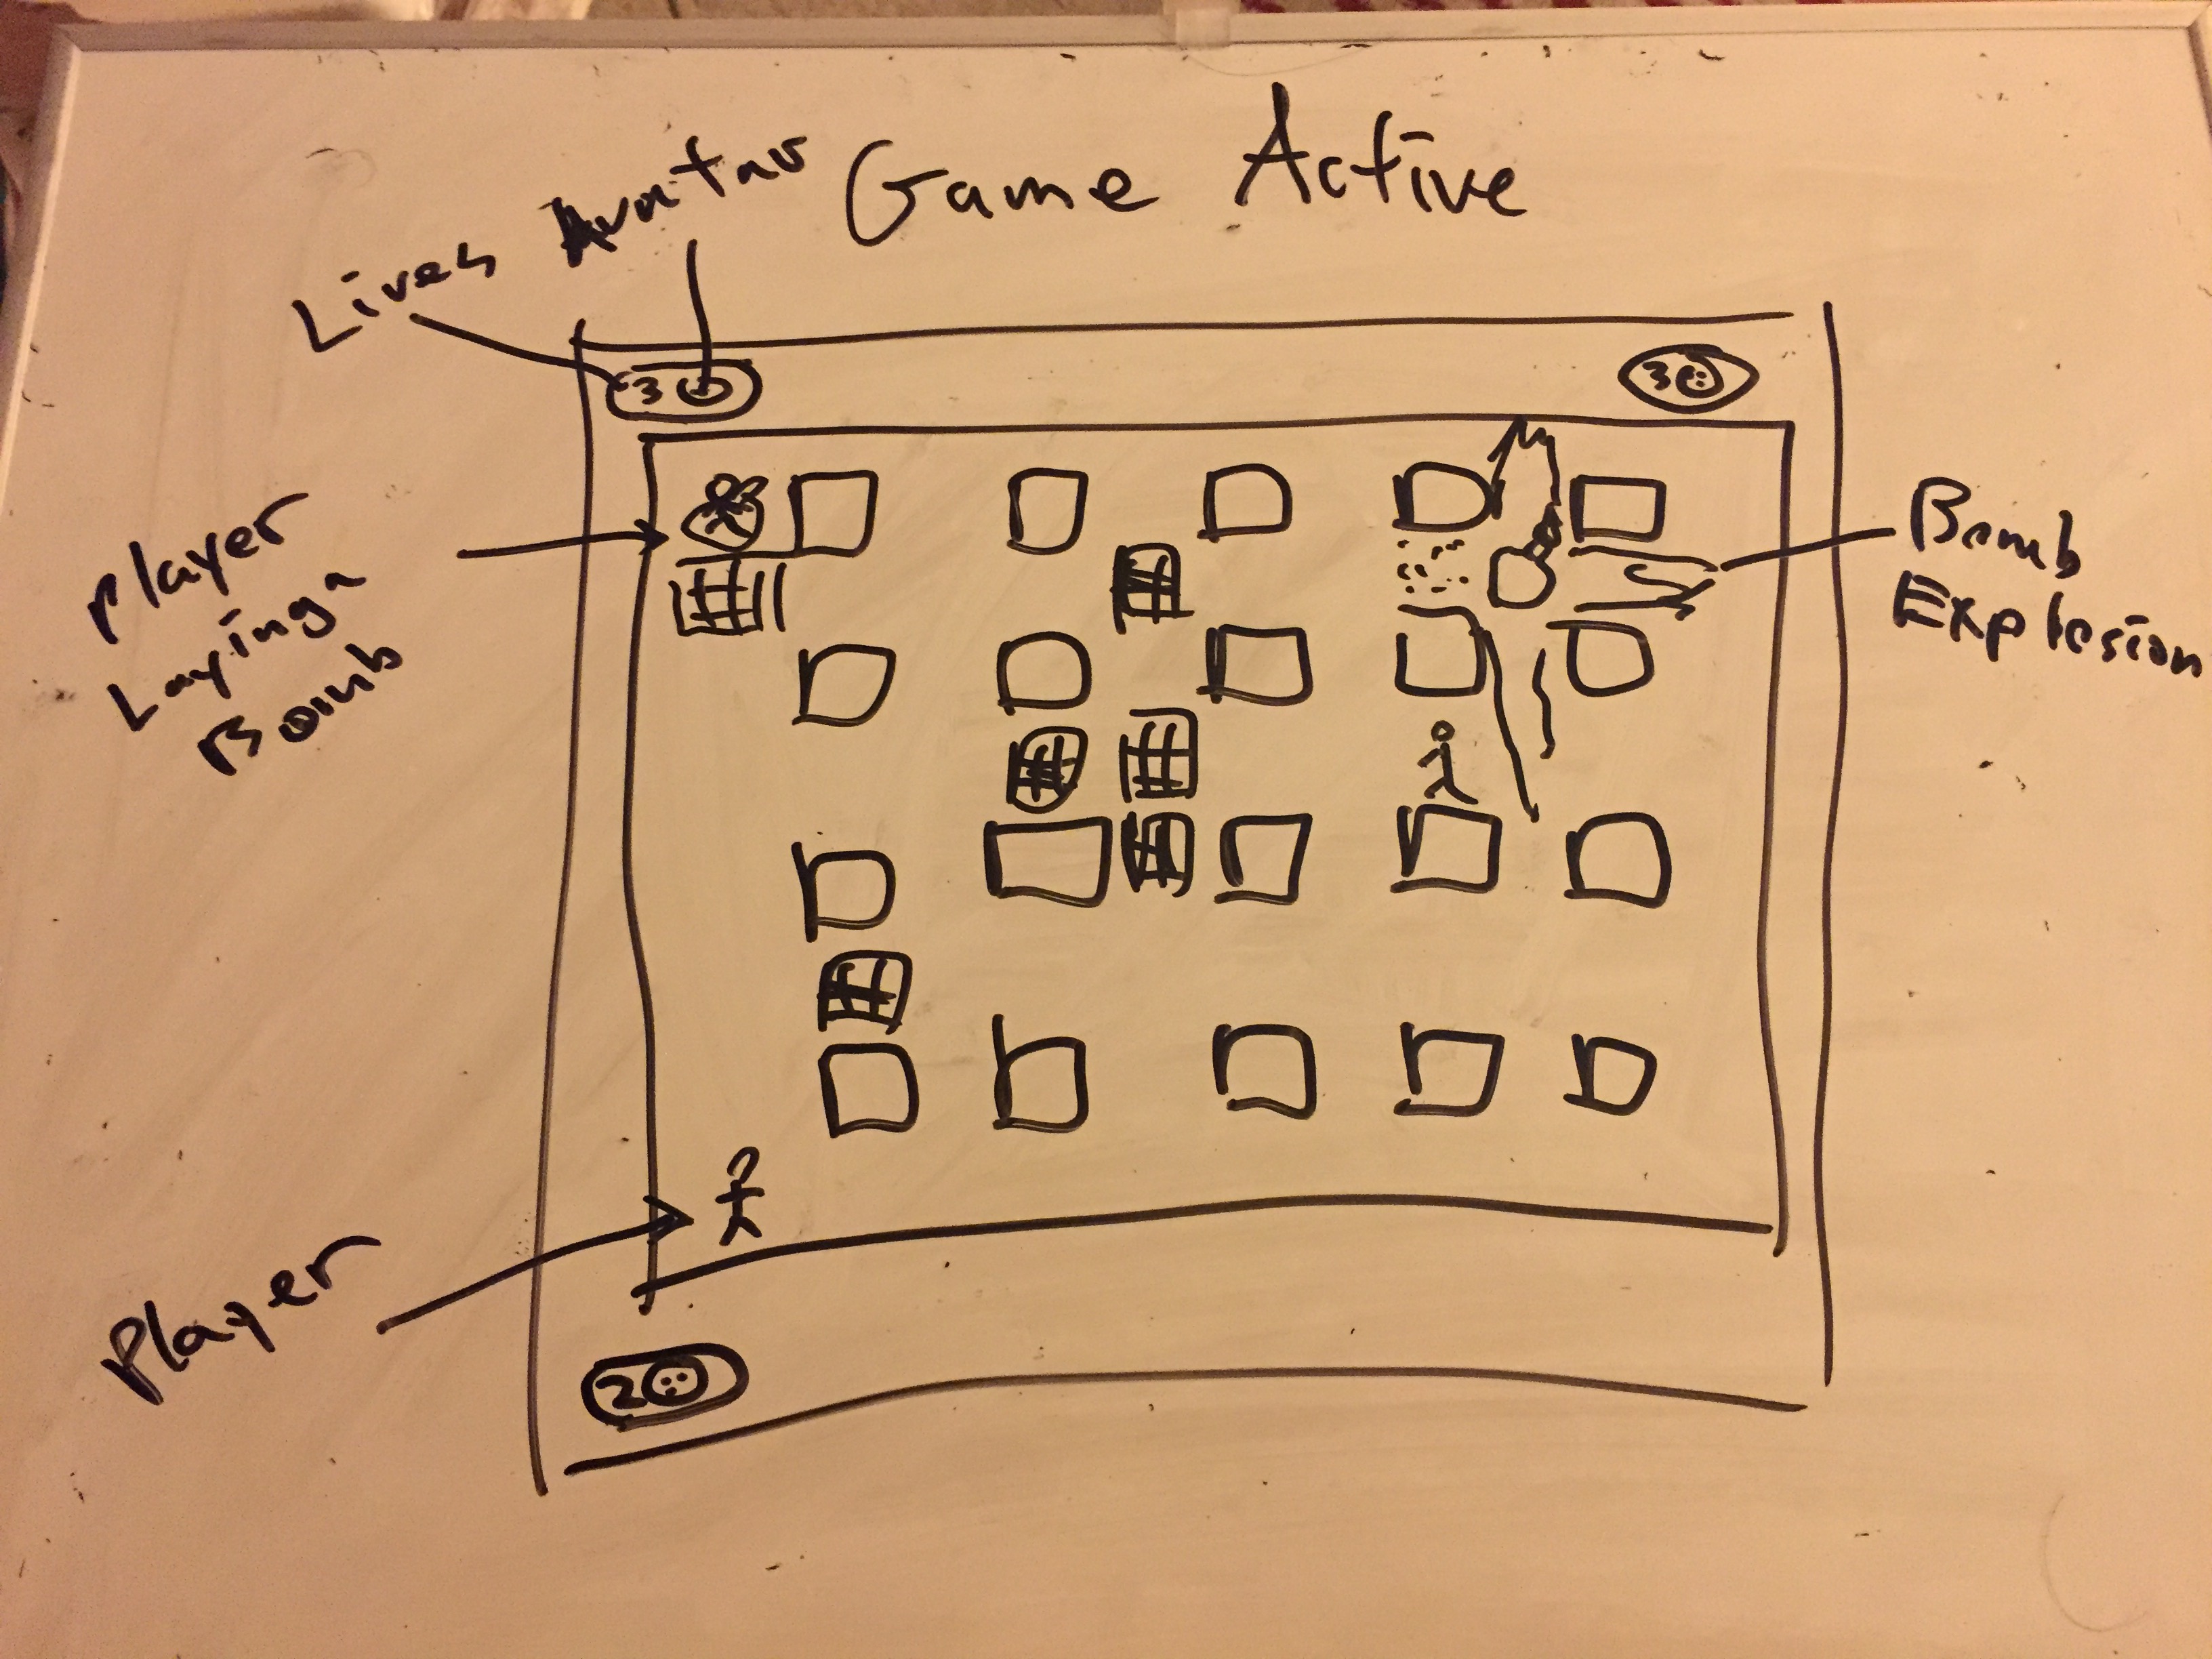 Game Active
Avatar
Lives
3
3
Player
Laying a
Bomb
Bomb
Explosion
Player
2